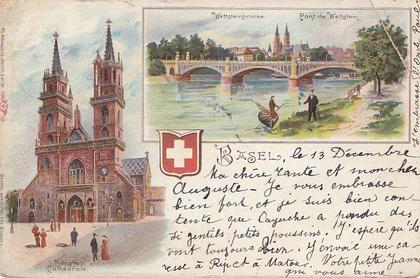 Wettsteinbrücke. Pont de Wettstein.
Münster
Cathédrale.
BASEL, le 13 Décembre
Ma chère Tante et mon cher
Auguste - Je vous embrasse
bien fort, et je suis bien con
tente que Capuche a pondu des
si gentils petits poussins. J'espère qu'ils
vont toujours bien. J'envoie une ca
resse à Rip et à Matou. Votre petite
qui vous aime